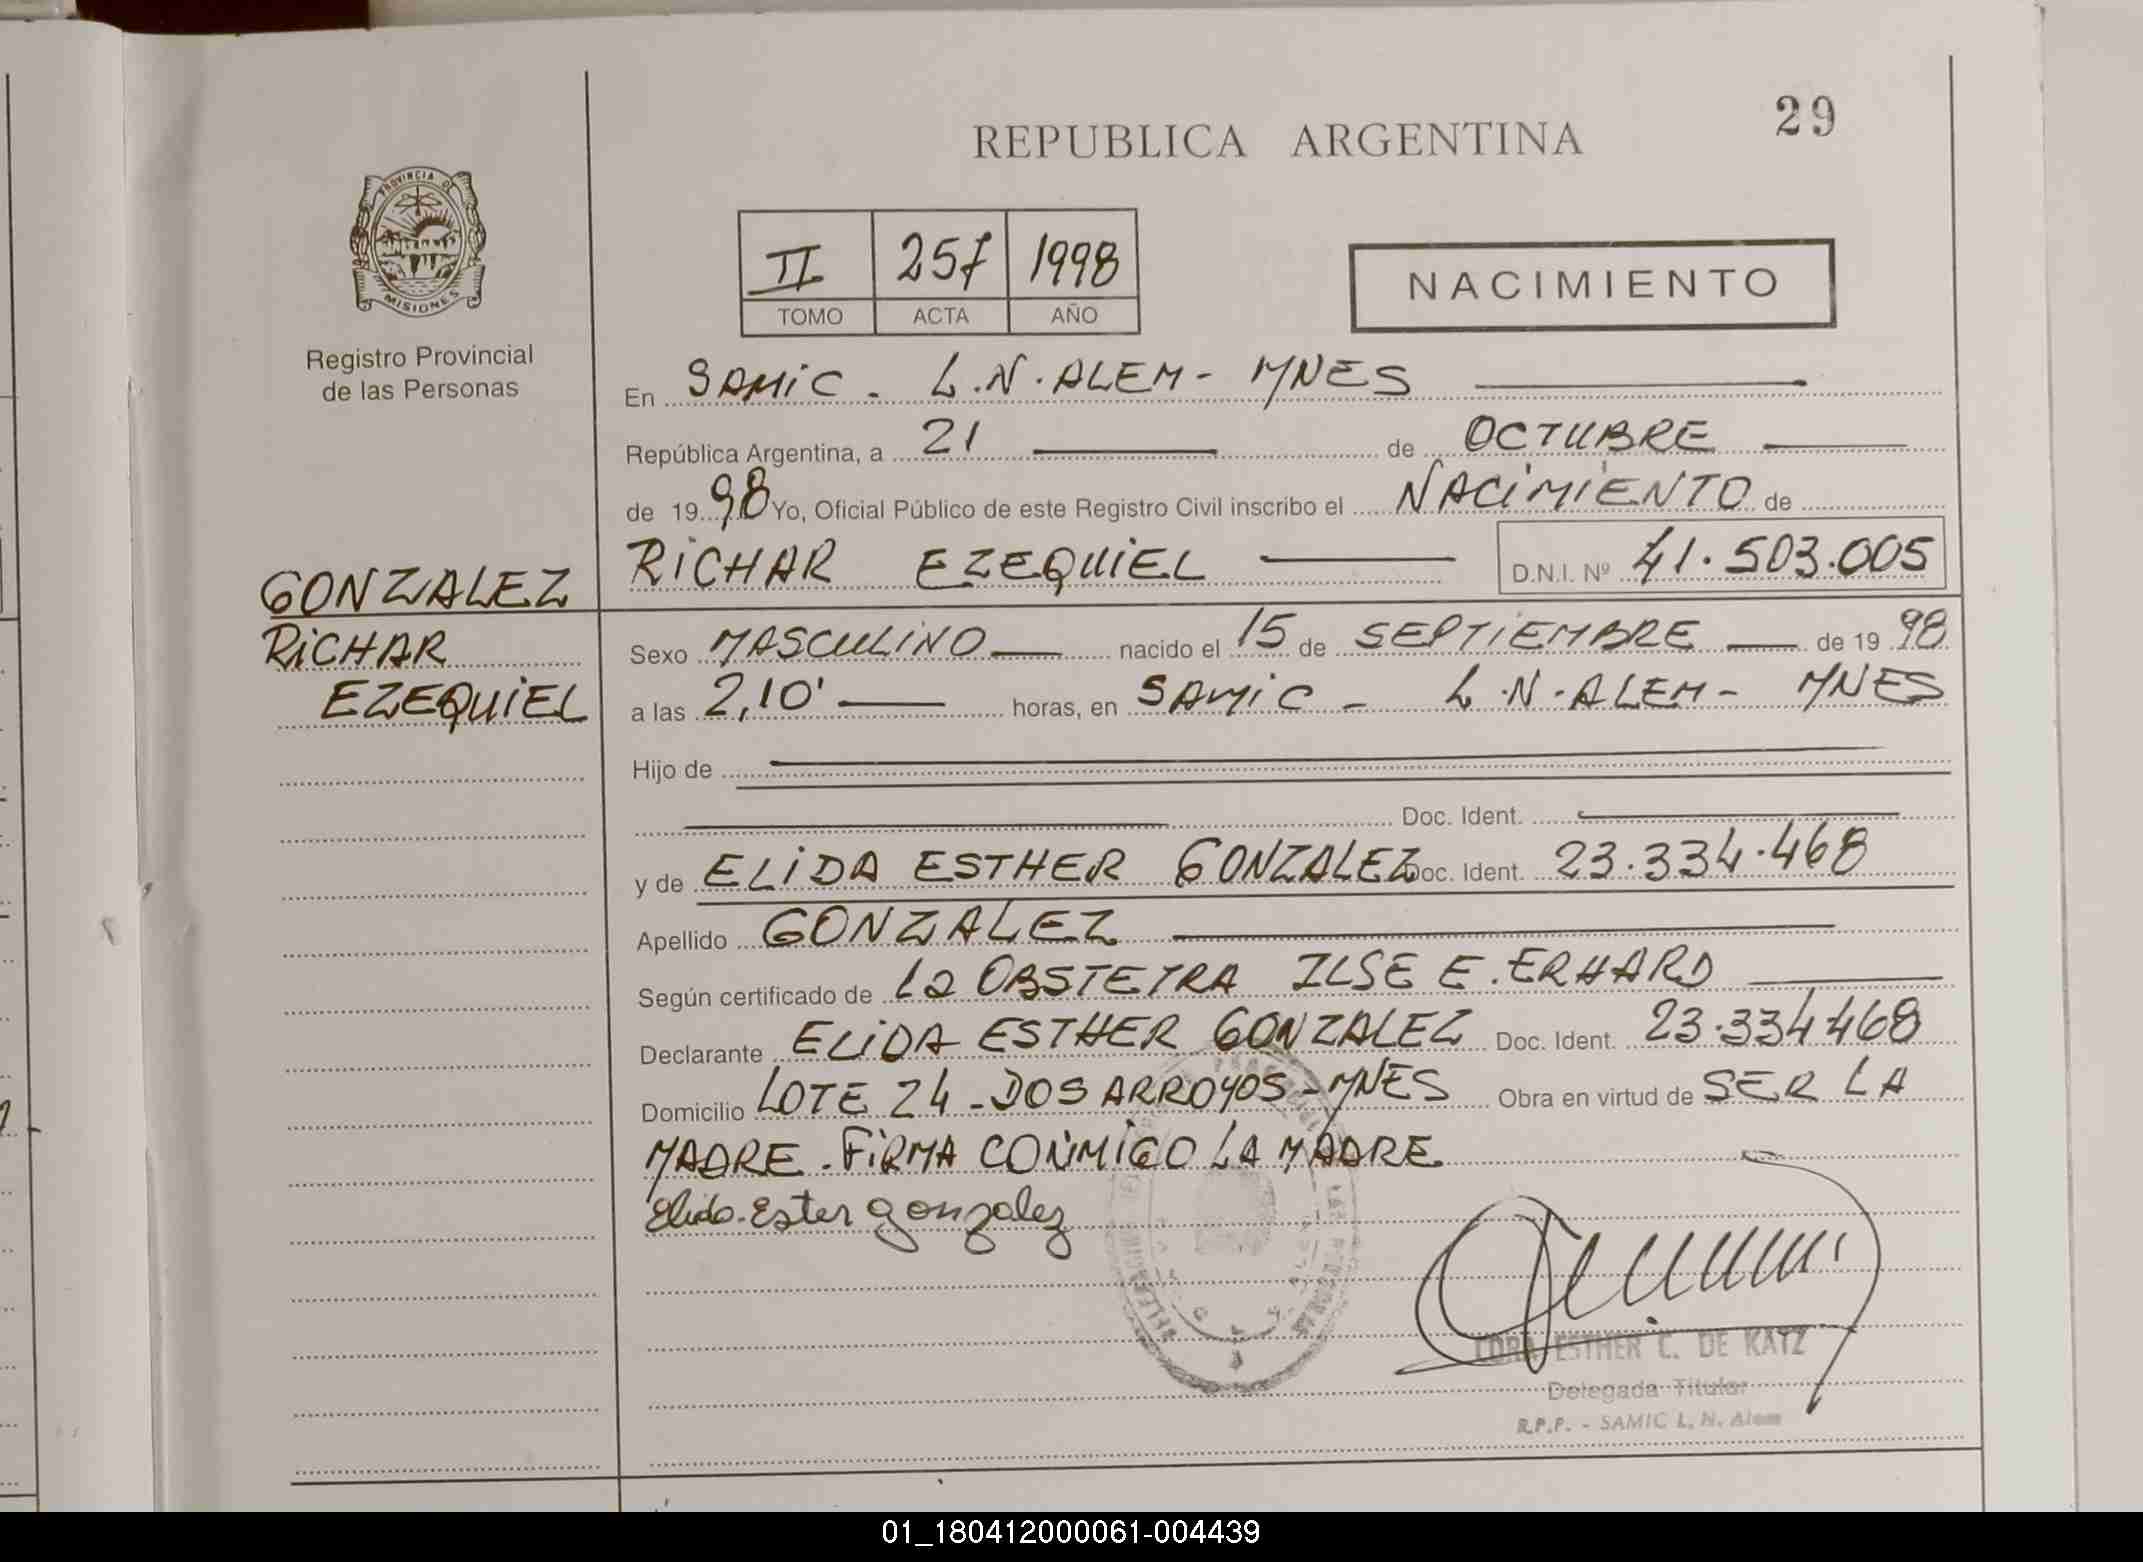 REPUBLICA ARGENTINA
29
PROVINCIA DE
MISIONES
Registro Provincial
de las Personas
II 257 1998
TOMO ACTA AÑO
NACIMIENTO
En SAMIC. L.N.ALEM- MNES
República Argentina, a 21 de OCTUBRE
de 1998 Yo, Oficial Público de este Registro Civil inscribo el NACIMIENTO de
RICHAR EZEQUIEL D.N.I. Nº 41.503.005
GONZALEZ
RICHAR
EZEQUIEL
Sexo MASCULINO nacido el 15 de SEPTIEMBRE de 1998
a las 2,10' horas, en SAMIC - L.N.ALEM- MNES
Hijo de
Doc. Ident.
y de ELIDA ESTHER GONZALEZ Doc. Ident. 23.334.468
Apellido GONZALEZ
Según certificado de La OBSTETRA ILSE E. ERHARD
Declarante ELIDA ESTHER GONZALEZ Doc. Ident. 23.334468
Domicilio LOTE 24-DOS ARROYOS-MNES Obra en virtud de SER LA
MADRE. FIRMA CONMIGO LA MADRE
Elida Ester gonzalez
ESTHER C. DE KATZ
Delegada Titular
R.P.P. - SAMIC L. N. Alem
01_180412000061-004439